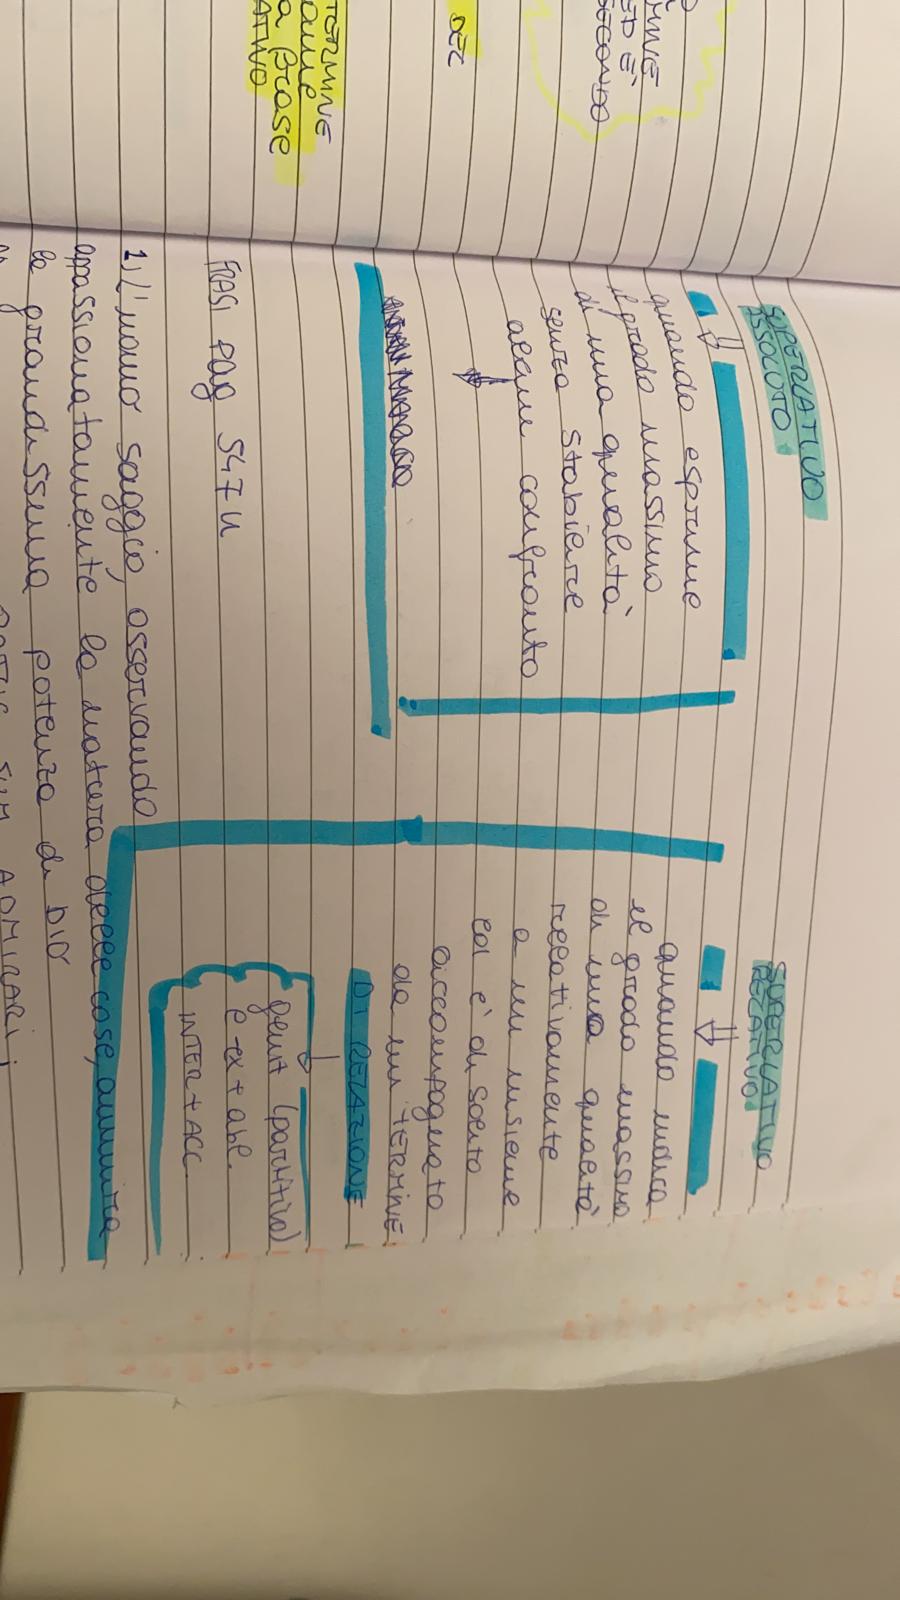 TERMINE
ED È
SECONDO
DEL
TERMINE
ATIVO
SUPERLATIVO
ASSOLUTO
quando esprime
il grado massimo
di una qualità
senza stabilire
alcun confronto
SUPERLATIVO
RELATIVO
quando indica
il grado massimo
di una qualità
relativamente
a un insieme
ed è di solito
accompagnato
da un TERMINE
DI RELAZIONE
genit (partitivo)
e -ex + abl.
INTER + ACC.
FRASI pag 547 n
1) L'uomo saggio, osservando
appassionatamente la natura delle cose, ammira
la grandissima potenza di DIO
SUM ADMIRARI ;